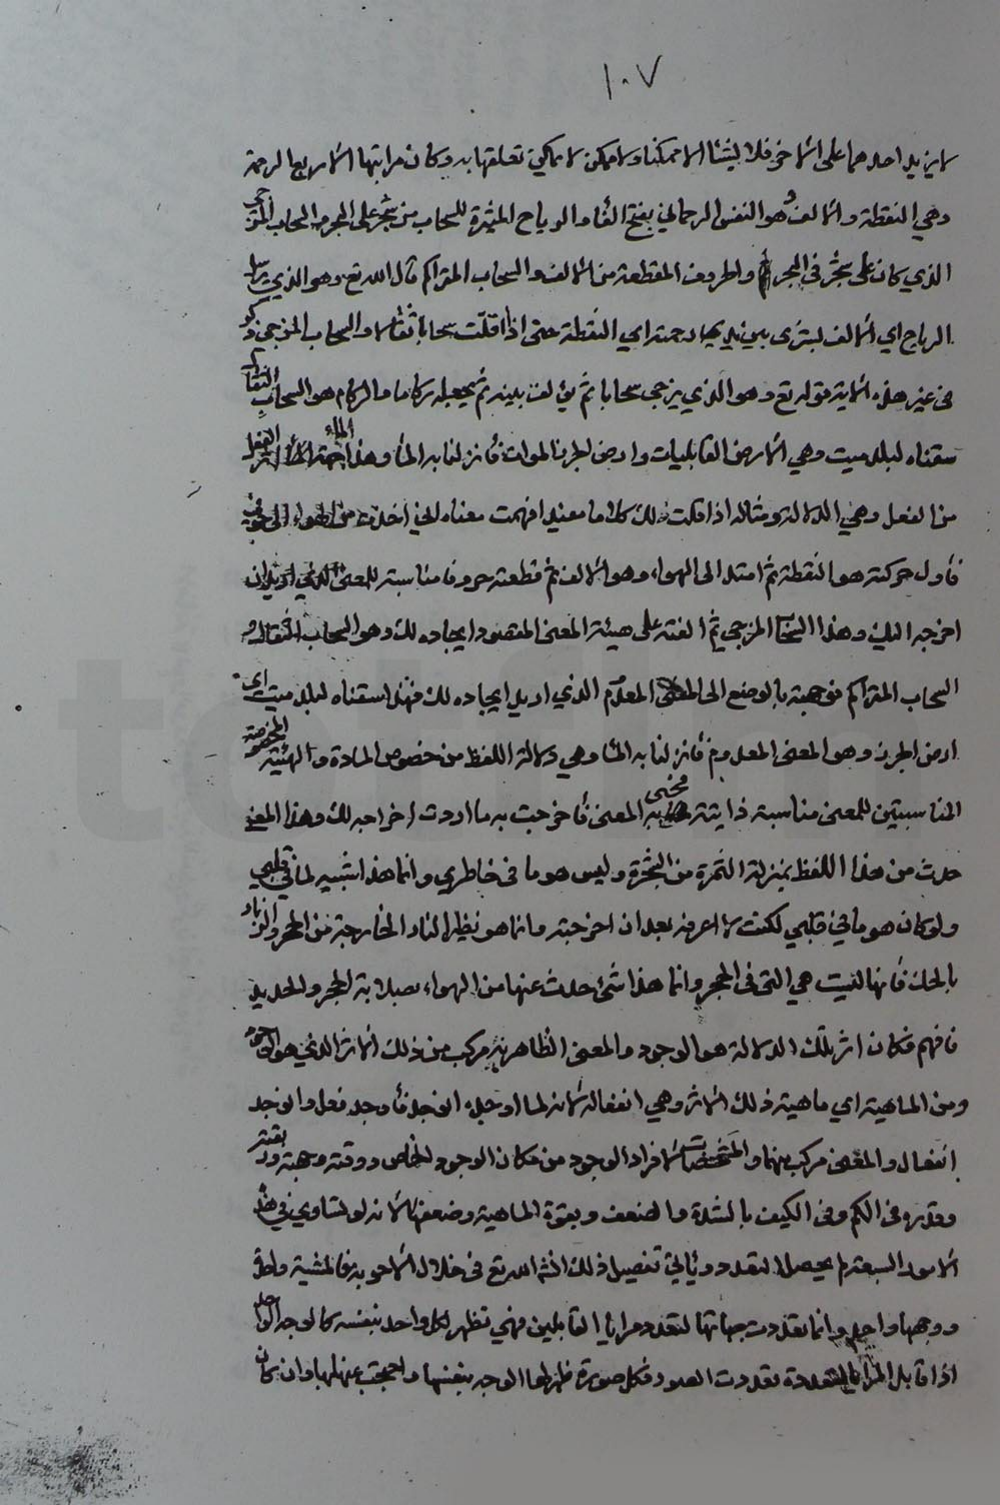 ١٠٧
لا يزيد احدهما على الاخر فلا يشاء الا ممكنا ولا ممكن لا يمكن تعلقها به وكان مراتبها الاربع الرحمة
وهي النقطة والالف وهو النفس الرحماني بفتح الفاء والرياح المثيرة للسحاب من شجر على البحر والسحاب المزجى
الذي كان على شجر في البحر والحروف المقطعة من الالف والسحاب المتراكم قال الله تع وهو الذي يرسل
الرياح اي الالف بشرى بين يدي رحمته اي النقطة حتى اذا اقلت سحابا ثقالا والسحاب المزجى
في غير هذه الاية قوله تع وهو الذي يزجي سحابا ثم يؤلف بينه ثم يجعله ركاما والركام هو السحاب الثقال
سقناه لبلد ميت وهي الارض القابليات وارض الجرز الموات فأنزلنا به الماء وهذا الماء
من الفعل وهي الدلالة ومثاله اذا قلت لك كلاما مفيدا فهمت معناه اني اخذت من الهواء الى جوفي
فاول حركته هو النقطة ثم امتد الى الهواء وهو الالف ثم قطعته حروفا مناسبة للمعنى الذي اريد ان
اخرجه اليك وهذا السحاب المزجي ثم الفته على هيئة المعنى المقصود ايجاده لك وهو السحاب الثقال و
السحاب المتراكم فوجهته بالوضع الى المعنى المعدوم الذي اريد ايجاده لك فهذا سقناه لبلد ميت اي
ارض الجرز وهو المعنى المعدوم فأنزلنا به الماء وهي دلالة اللفظ من خصوص المادة والهيئة المخصوصة
المناسبتين للمعنى مناسبة ذاتية فحيى به المعنى فأخرجت به ما اردت اخراجه لك وهذا المعنى
حدث من هذا اللفظ بمنزلة الثمرة من الشجرة وليس هو ما في خاطري وانما هذا شبيه لما في قلبي
ولو كان هو ما في قلبي لكنت لا اعرفه بعد ان اخرجته وانما هو نظير النار الخارجة من الحجر والزناد
بالحك فأنها ليست هي التي في الحجر وانما هذا شئ احدث عنها من الهواء بصلابة الحجر والحديد
فافهم فكان اثر تلك الدلالة هو الوجود والمعنى الظاهر به مركب من ذلك الاثر الذي هو الوجود
ومن الماهية اي ماهية ذلك الاثر وهي انفعاله لانه لما اوجده انوجد فأوجد فعل وانوجد
انفعال والمعنى مركب منهما والمشخصات لافراد الوجود من مكان الوجود الخاص ووقته وجهته ورتبته
وقدره في الكم وفي الكيف بالشدة والضعف وبقوة الماهية وضعفها لانه لو تساوى في هذه
الامور السبعة لم يحصل التعدد ويأتي تفصيل ذلك انشاء الله تع في خلال الاجوبة فالمشية واحدة
ووجهها واحد وانما تعددت جهاتها لتعدد مرايا القابلين فهي تظهر لكل واحد بنفسه كالوجه الواحد
اذا قابل المرايا المتعددة تعددت الصور فكل صورة ظهر لها الوجه بنفسها واحتجب عنها بها وان كان